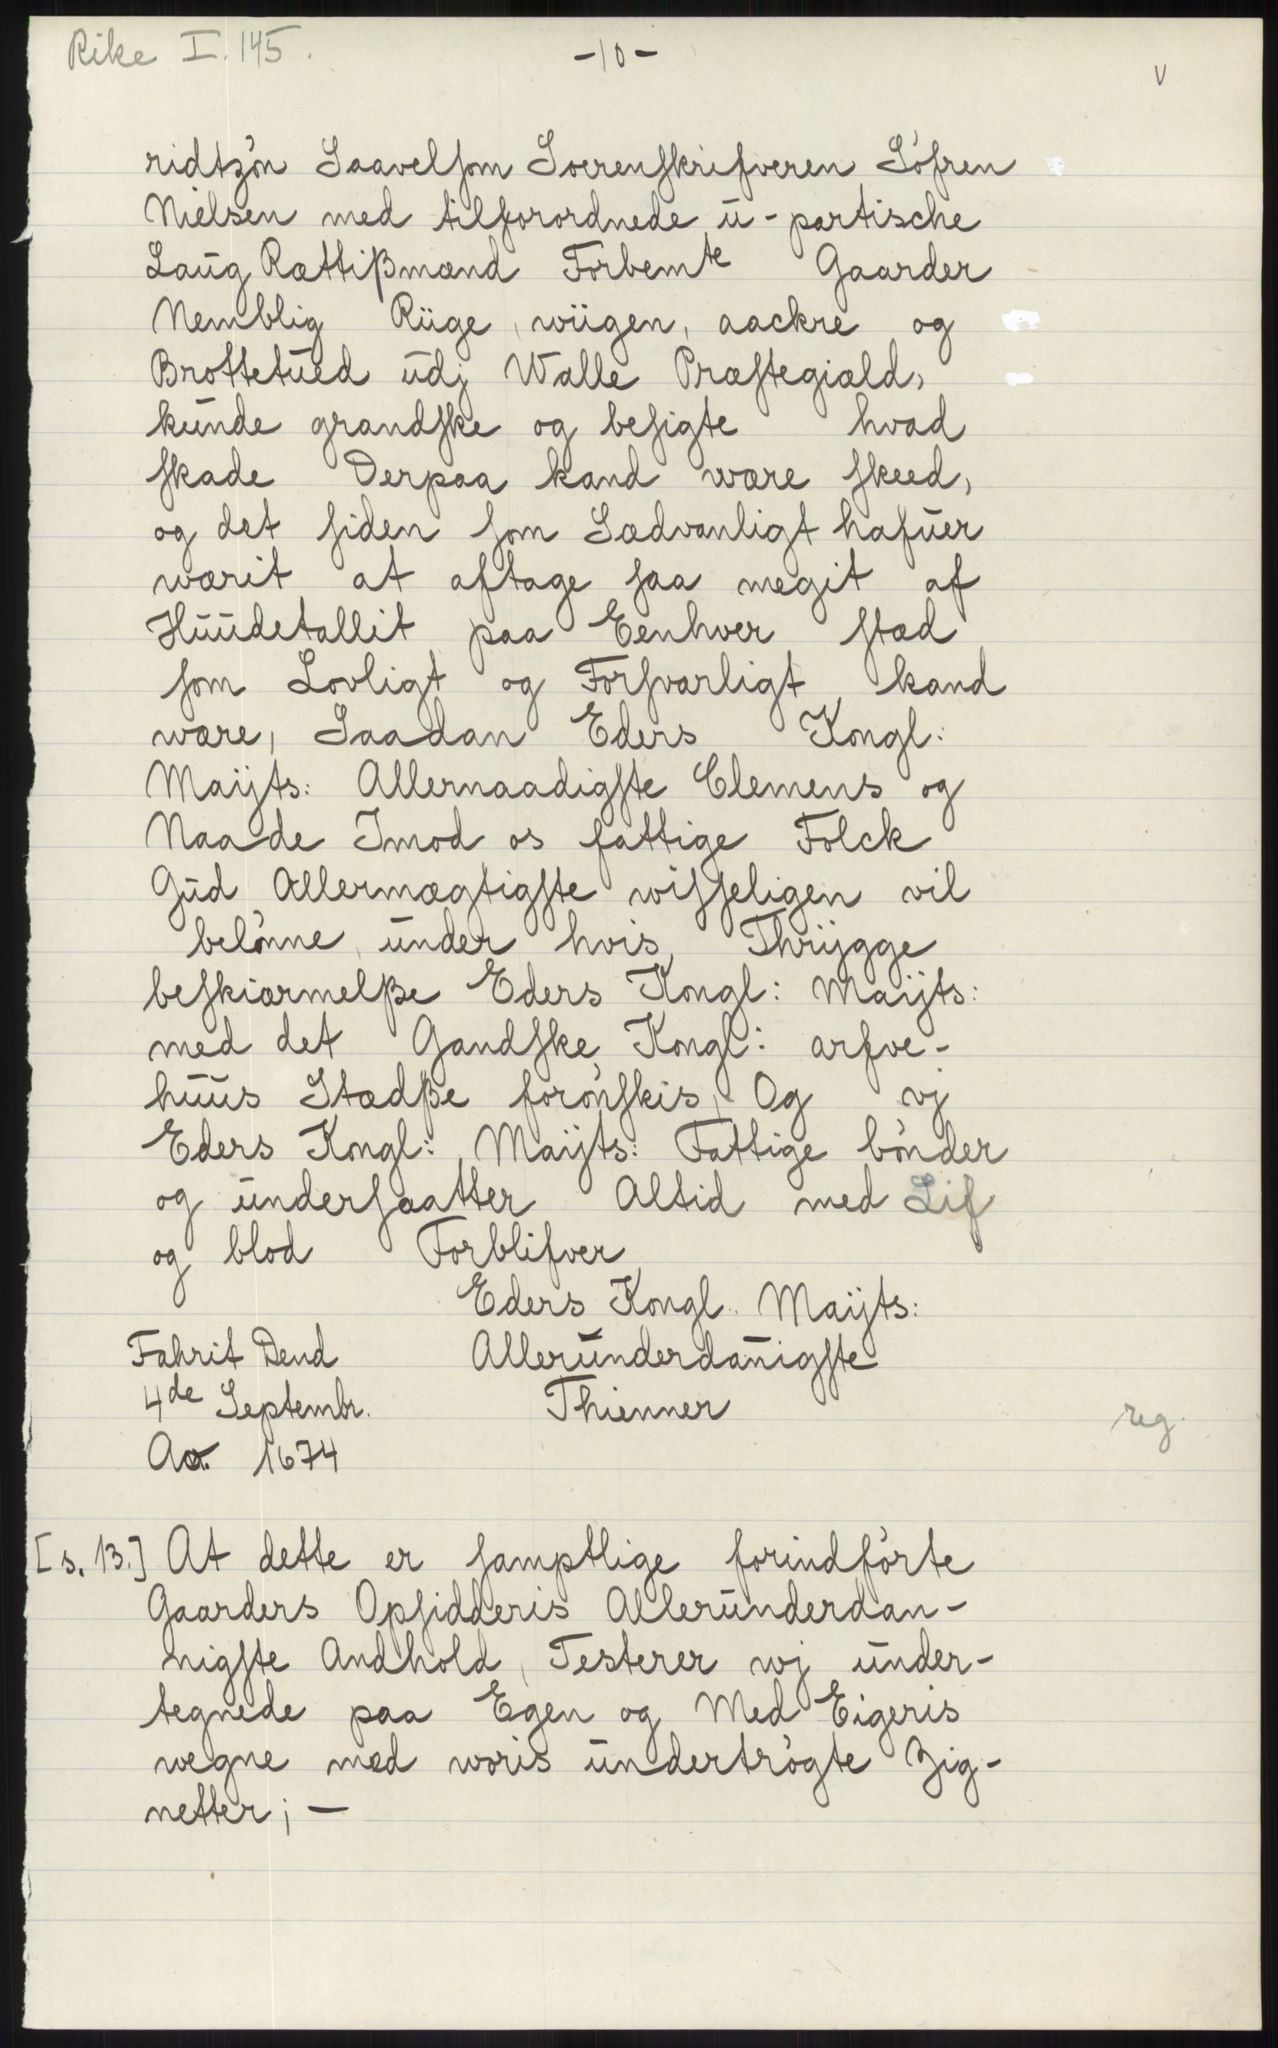 Rike I. 145.
-10-
v
ridtzón Saavelsom Soerenskrifveren Söfren
Nielsen med tilforordnede u-partische
Laug Rættißmænd Forbemte Gaarder
Nemblig Riige, wiigen, aackre og
Brottetued udj Walle Præstegiæld,
kunde grandske og besigte hvad
skade Derpaa kand wære skeed,
og det siden som Sædvanligt hafuer
wærit at aftage saa megit af
Huudetallit paa Eenhver stæd
som Lovligt og Forsvarligt kand
wære, Saadan Eders Kongl:
Maijts: Allernaadigste Clemens og
Naade Imod os fattige Folck
Gud Allermægtigste wisseligen vil
belönne, under hvis, Thrygge
beskiærmelße Eders Kongl: Maijts:
med det Gandske Kongl: arfve-
huus Stædße forönskis, Og vj
Eders Kongl: Maijts: Fattige bönder
og undersaatter Altid med Lif
og blod Forblifver
Eders Kongl. Maijts:
Fahrit Dend Allerunderdanigste
4de Septembr. Thienner
reg.
Ao. 1674
[s. 13.] At dette er samptlige forindförte
Gaarders Opsidderis Allerunderdan-
nigste Andhold, Testerer wj under-
tegnede paa Egen og Med Eigeris
wegne med woris undertrögte Zig-
netter; —